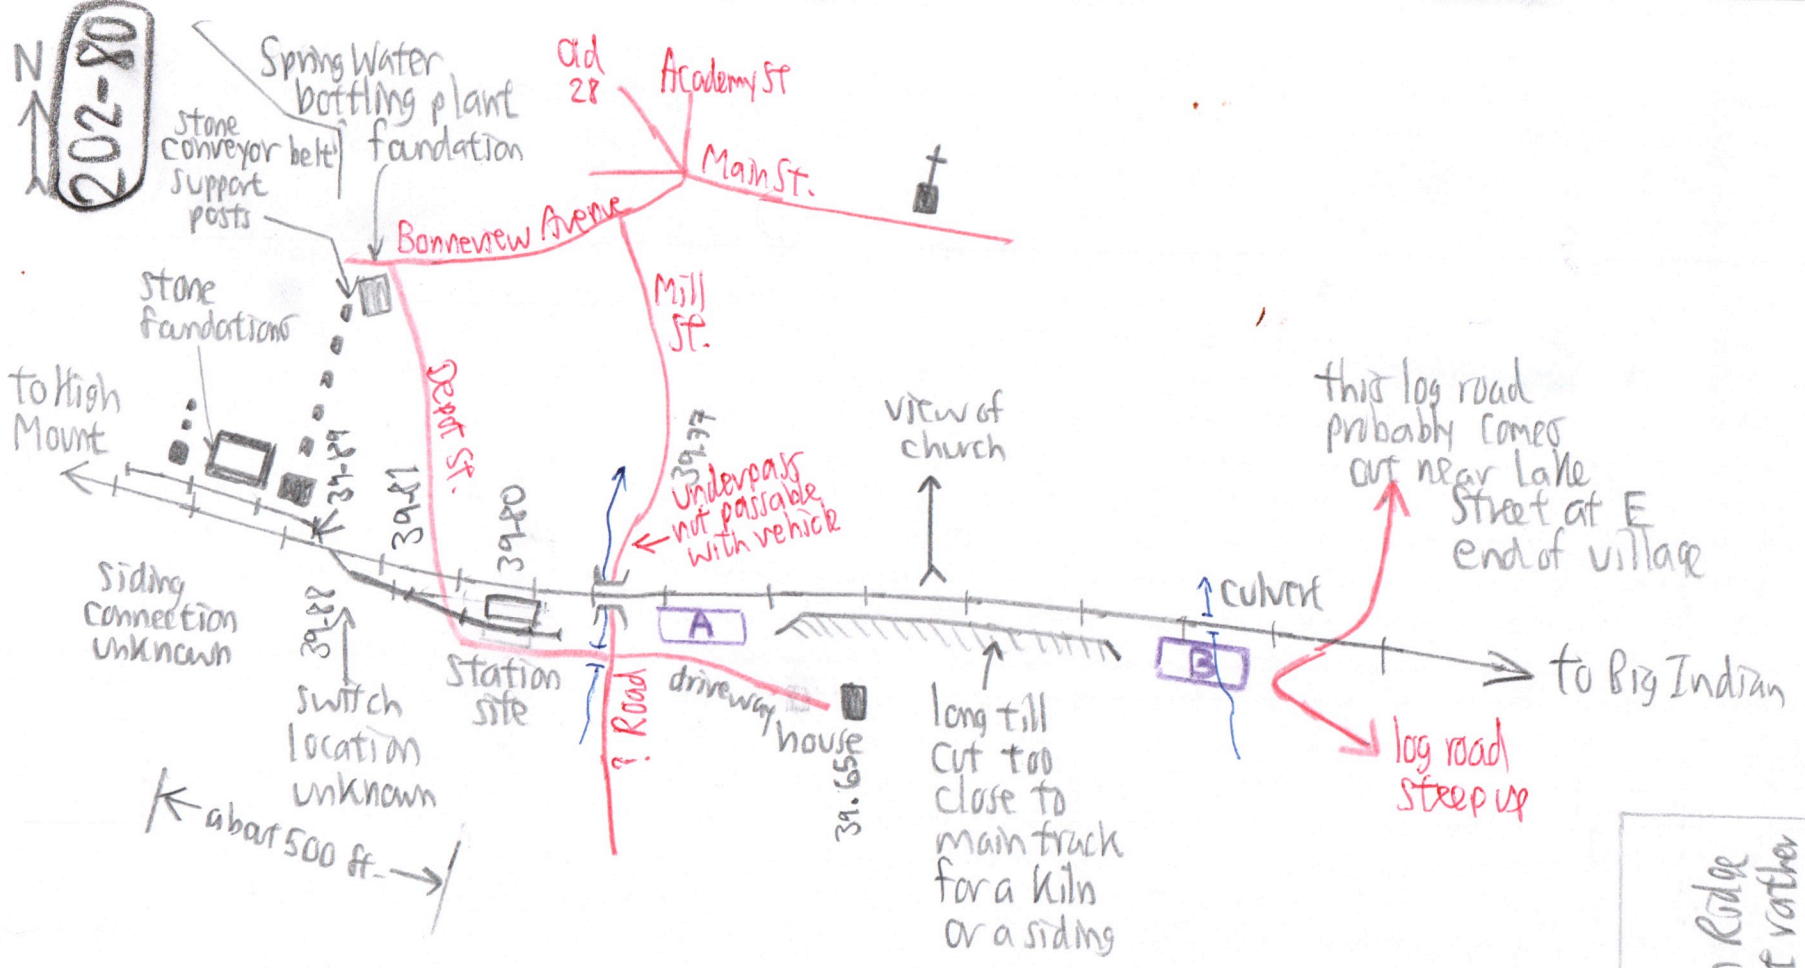 N
202-80
Spring Water
bottling plant
foundation
stone
conveyor belt
support
posts
old
28
Academy St
Main St.
Bonneview Avenue
stone
foundations
Mill
St.
to High
Mount
Depot St.
39-89
39-81
39-80
39-77
underpass
not passable
with vehicle
view of
church
this log road
probably comes
out near Lake
Street at E
end of village
siding
connection
unknown
39-88
switch
location
unknown
station
site
A
culvert
B
to Big Indian
? Road
driveway
house
39.65
long till
cut too
close to
main track
for a kiln
or a siding
log road
steep up
about 500 ft.
Ridge
rather